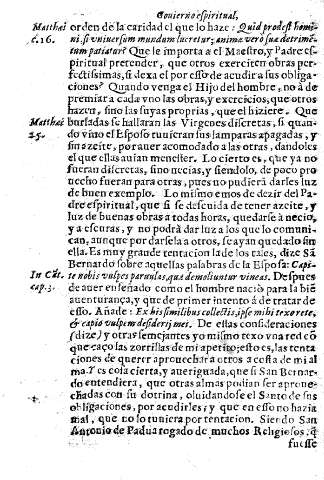 Govierno espiritual,
Matthæi orden de la caridad el que lo haze: Quid prodest homi-
c.16. ni, si vniuersum mundum lucretur, animæ vero suæ detrimē-
tum patiatur? Que le importa al Maestro, y Padre es-
piritual pretender, que otros exerciten obras per-
fectissimas, si dexa el por esso de acudir a sus obliga-
ciones? Quando venga el Hijo del hombre, no á de
premiar a cada vno las obras, y exercicios, que otros
hazen, sino las suyas proprias, que el hiziere. Que
Matthæi burladas se hallaran las Virgenes discretas, si quan-
25. do vino el Esposo tuuieran sus lamparas apagadas, y
sin azeite, por auer acomodado a las otras, dandoles
el que ellas auian menester. Lo cierto es, que ya no
fueran discretas, sino necias, y siendolo, de poco pro-
uecho fueran para otras, pues no pudierā darles luz
de buen exemplo. Lo mismo emos de dezir del Pa-
dre espiritual, que si se descuida de tener azeite, y
luz de buenas obras a todas horas, quedarse à necio,
y a escuras, y no podrà dar luz a los que lo comuni-
can, aunque por darsela a otros, se ayan quedado sin
ella. Es muy grande tentacion la de los tales, dize Sā
Bernardo sobre aquellas palabras de la Esposa: Capi-
In Cāt. te nobis vulpes paruulas, quæ demoliuntur vineas. Despues
cap.3. de auer enseñado como el hombre nació para la biē
auenturança, y que de primer intento á de tratar de
esso. Añade: Ex his similibus collectis, ipse mihi texo rete,
& capio vulpem desiderij mei. De ellas consideraciones
(dize) y otras semejantes yo mismo texo vna red cō
que caço las zorrillas de mi apetito; esto es, las tenta-
ciones de querer aprouechar a otros a costa de mi al
ma. Y es cosa cierta, y aueriguada, que si San Bernar-
do entendiera, que otras almas podian ser aproue-
chadas con su dotrina, oluidandose el Santo de sus
obligaciones, por acudirles; y que en esso no hazia
mal, que no lo tuuiera por tentacion. Siendo San
Antonio de Padua rogado de muchos Religiosos, q̃
fuesse